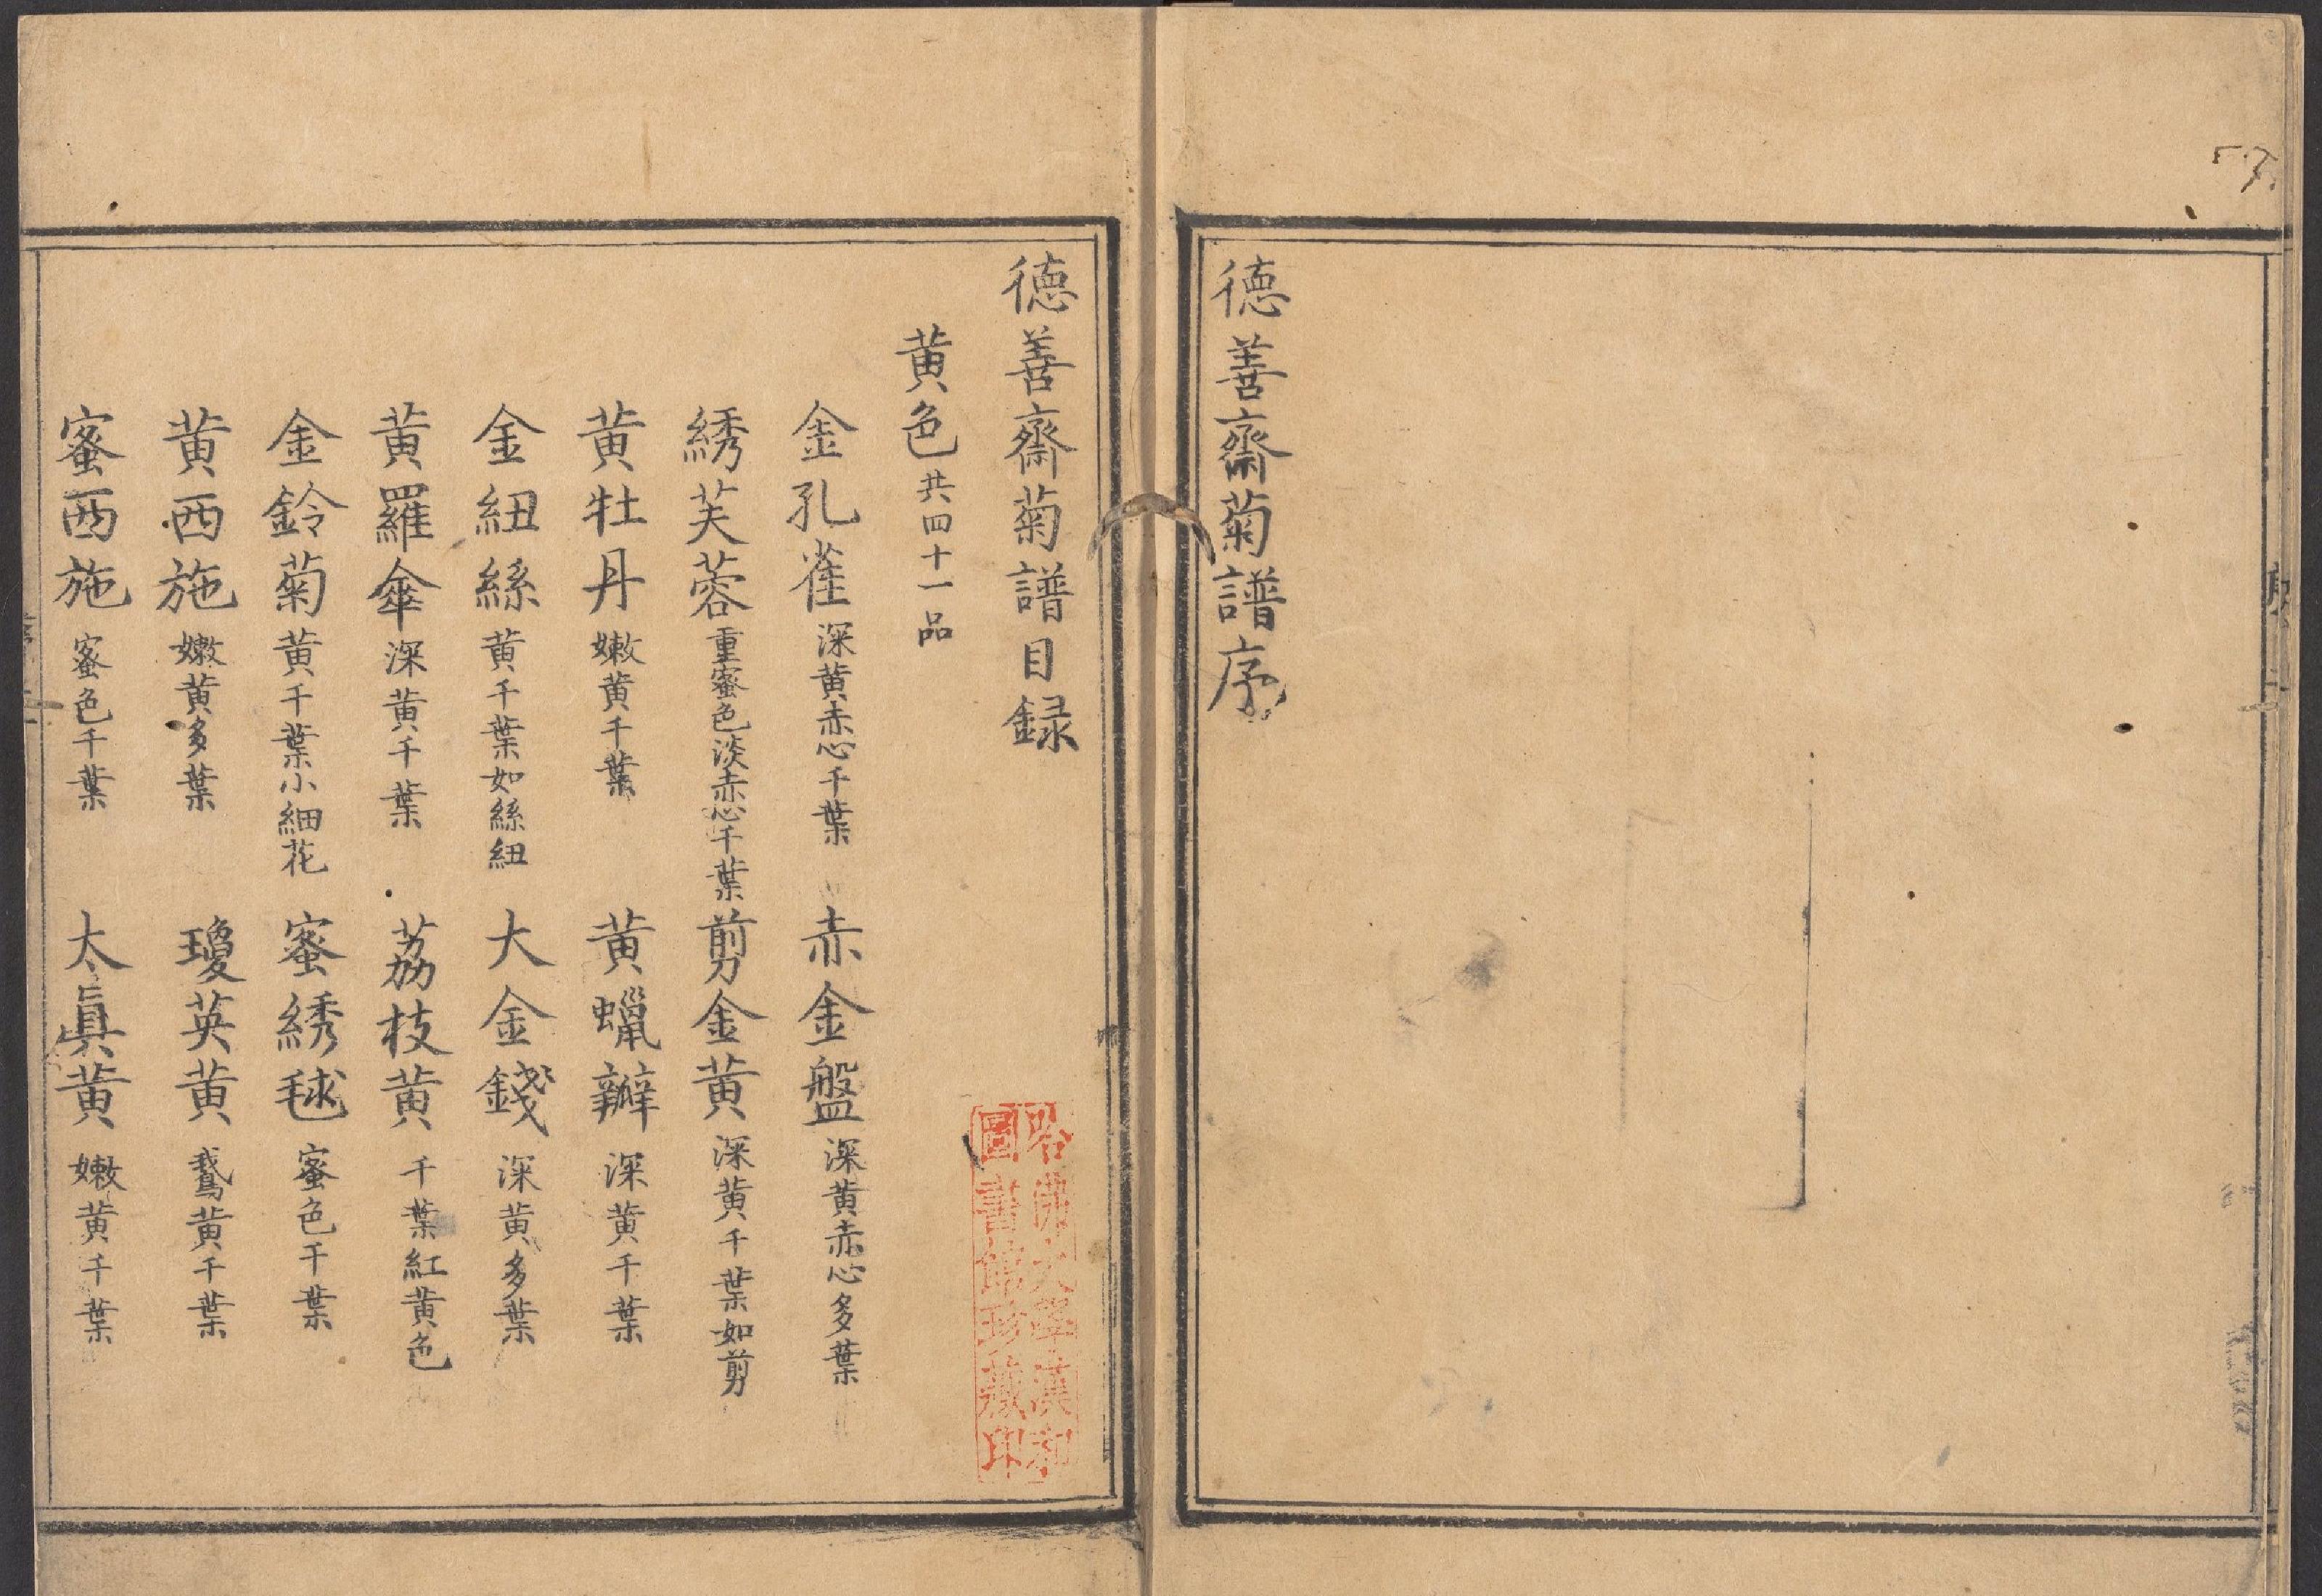 德善齋菊譜序
德善齋菊譜目録
黄色 共四十一品
金孔雀 深黄赤心千葉 赤金盤 深黄赤心多葉
綉芙蓉 重蜜色淡赤心千葉 剪金黄 深黄千葉如剪
黄牡丹 嫩黄千葉 黄蠟瓣 深黄千葉
金紐絲 黄千葉如絲紐 大金錢 深黄多葉
黄羅傘 深黄千葉 荔枝黄 千葉紅黄色
金鈴菊 黄千葉小細花 蜜綉毬 蜜色千葉
黄西施 嫩黄多葉 瓊英黄 鵞黄千葉
蜜西施 蜜色千葉 太眞黄 嫩黄千葉
哈佛大學漢和
圖書館珍藏印